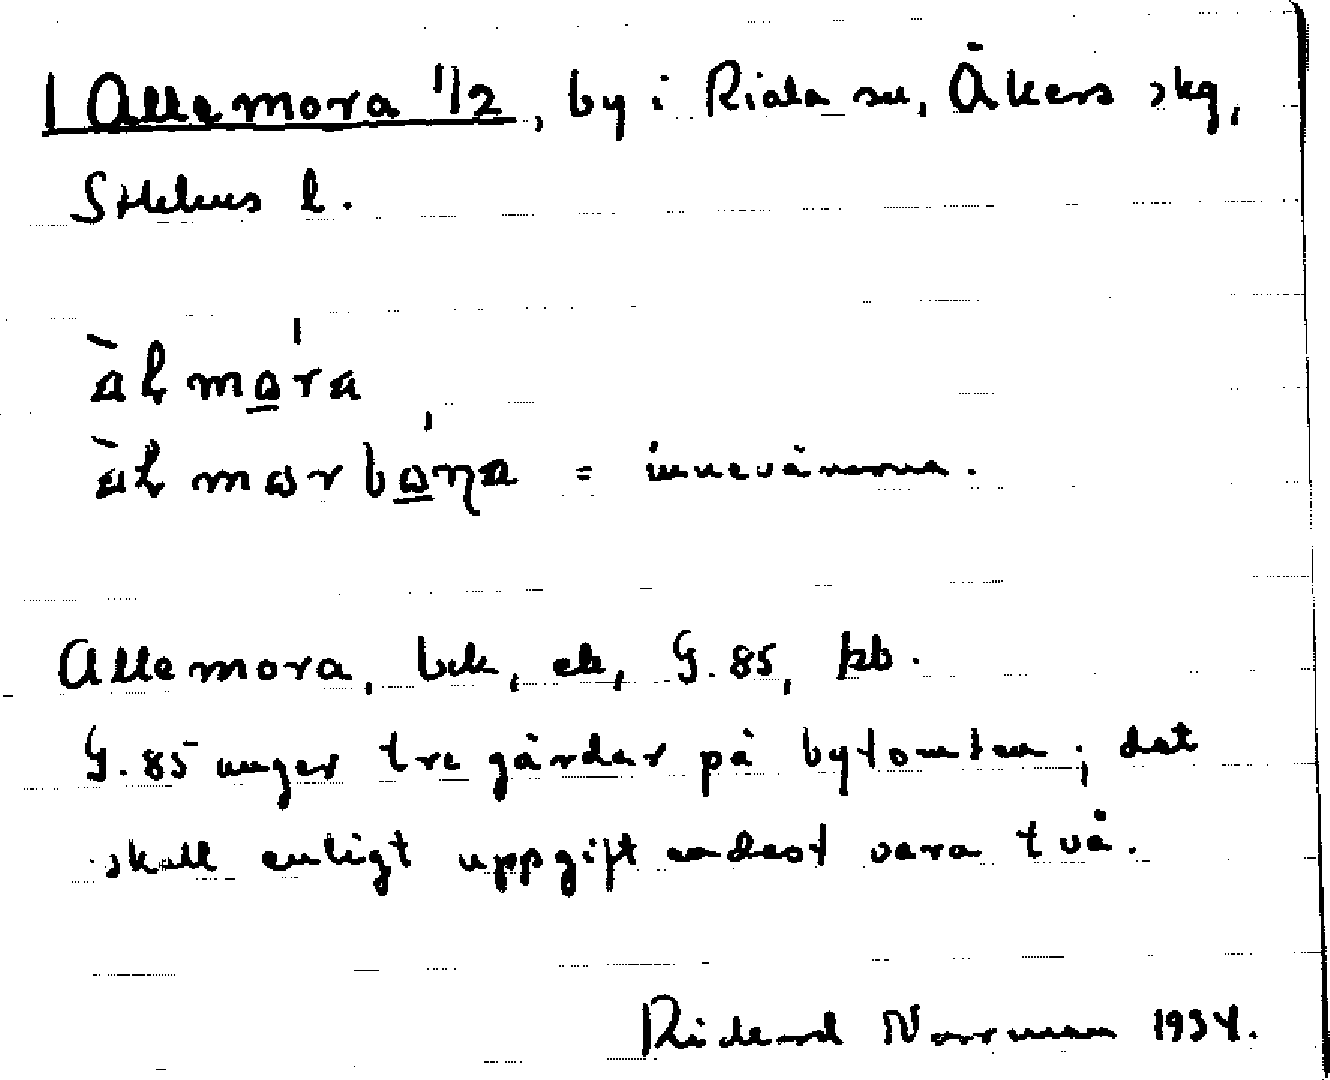 1 Allemora 1/2, by i Riala sn, Åkers skg,
Sthlms l.
àlmo̲ra
àlmorbo̲ŋa = innevånarna.
Allemora, bek, ek, G. 85, kb.
G. 85 anger tre gårdar på bytomten; det
skall enligt uppgift endast vara två.
Rickard Norrman 1934.